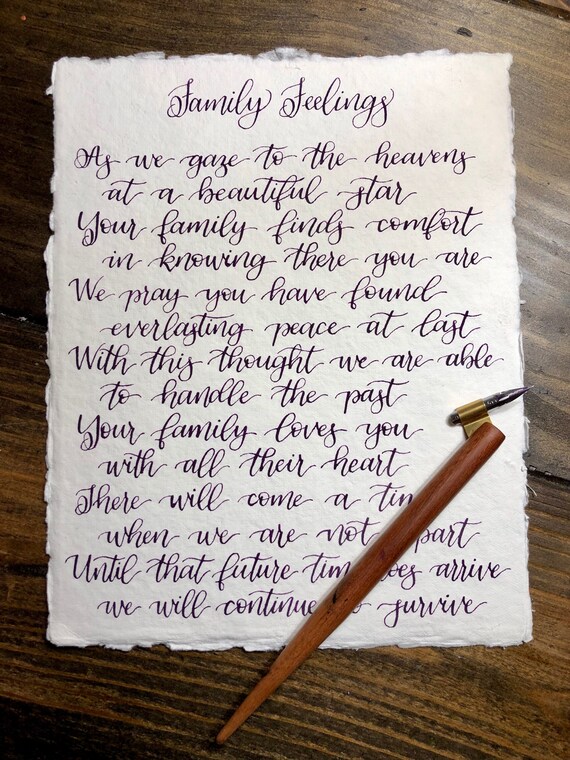 Family Feelings
As we gaze to the heavens
at a beautiful star
Your family finds comfort
in knowing there you are
We pray you have found
everlasting peace at last
With this thought we are able
to handle the past
Your family loves you
with all their heart
There will come a tim
when we are not part
Until that future tim oes arrive
we will continue o survive